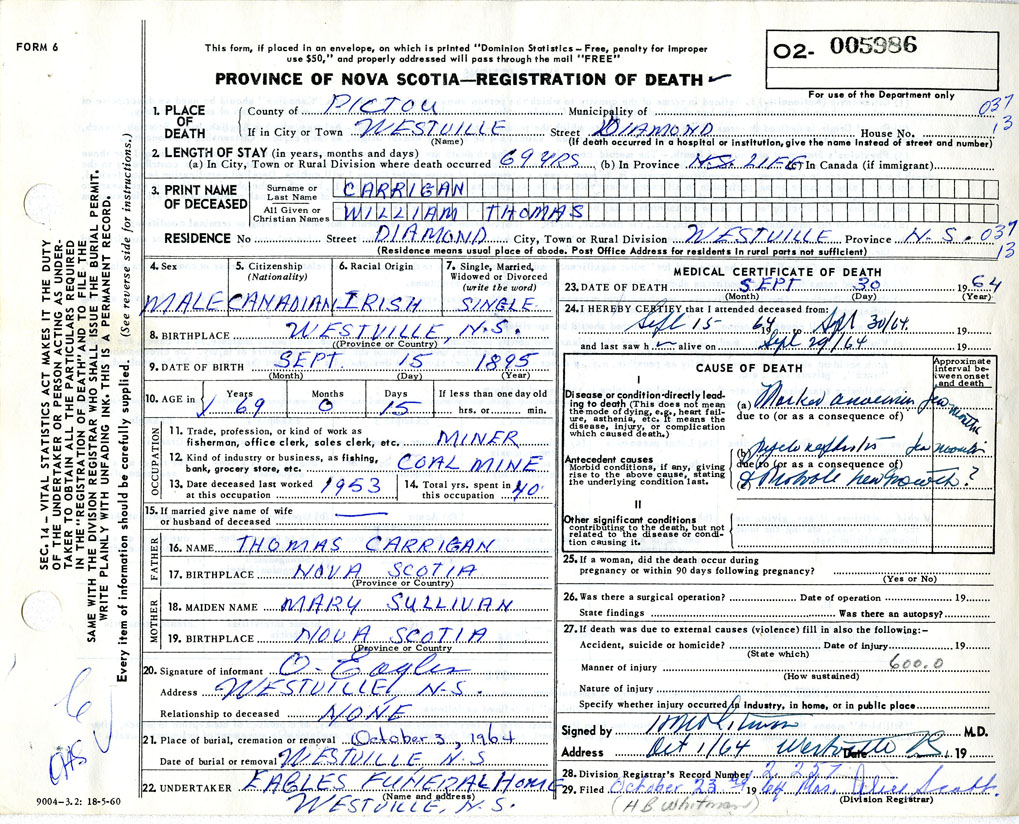 FORM 6
This form, if placed in an envelope, on which is printed "Dominion Statistics – Free, penalty for improper
use $50," and properly addressed will pass through the mail "FREE"
PROVINCE OF NOVA SCOTIA—REGISTRATION OF DEATH
02- 005986
For use of the Department only
1. PLACE OF DEATH County of PICTOU Municipality of 037
If in City or Town WESTVILLE Street DIAMOND House No. 13
(Name) (If death occurred in a hospital or institution, give the name instead of street and number)
2. LENGTH OF STAY (in years, months and days)
(a) In City, Town or Rural Division where death occurred 69 YRS (b) In Province N.S. LIFE In Canada (if immigrant)
3. PRINT NAME OF DECEASED Surname or Last Name CARRIGAN
All Given or Christian Names WILLIAM THOMAS
RESIDENCE No Street DIAMOND City, Town or Rural Division WESTVILLE Province N.S. 037
(Residence means usual place of abode. Post Office Address for residents in rural parts not sufficient) 13
SEC. 14 – VITAL STATISTICS ACT MAKES IT THE DUTY
OF THE UNDERTAKER OR PERSON ACTING AS UNDER-
TAKER TO OBTAIN ALL THE PARTICULARS REQUIRED
IN THE "REGISTRATION OF DEATH" AND TO FILE THE
SAME WITH THE DIVISION REGISTRAR WHO SHALL ISSUE THE BURIAL PERMIT.
WRITE PLAINLY WITH UNFADING INK. THIS IS A PERMANENT RECORD.
Every item of information should be carefully supplied. (See reverse side for instructions.)
4. Sex MALE
5. Citizenship (Nationality) CANADIAN
6. Racial Origin IRISH
7. Single, Married, Widowed or Divorced (write the word) SINGLE
8. BIRTHPLACE WESTVILLE, N.S.
(Province or Country)
9. DATE OF BIRTH SEPT. 15 1895
(Month) (Day) (Year)
10. AGE in Years Months Days If less than one day old
69 0 15 hrs. or min.
OCCUPATION
11. Trade, profession, or kind of work as
fisherman, office clerk, sales clerk, etc. MINER
12. Kind of industry or business, as fishing,
bank, grocery store, etc. COAL MINE
13. Date deceased last worked at this occupation 1953
14. Total yrs. spent in this occupation 40
15. If married give name of wife
or husband of deceased
FATHER
16. NAME THOMAS CARRIGAN
17. BIRTHPLACE NOVA SCOTIA
(Province or Country)
MOTHER
18. MAIDEN NAME MARY SULLIVAN
19. BIRTHPLACE NOVA SCOTIA
(Province or Country)
20. Signature of informant O. Eagles
Address WESTVILLE, N.S.
Relationship to deceased NONE
21. Place of burial, cremation or removal October 3, 1964
Date of burial or removal WESTVILLE, N.S
22. UNDERTAKER EAGLES FUNERAL HOME
(Name and address)
WESTVILLE, N.S.
MEDICAL CERTIFICATE OF DEATH
23. DATE OF DEATH SEPT 30 1964
(Month) (Day) (Year)
24. I HEREBY CERTIFY that I attended deceased from:
Sept 15 64 to Sept 30/64 19
and last saw h alive on Sept 29/64 19
CAUSE OF DEATH
Approximate interval between onset and death
I
Disease or condition directly leading to death (This does not mean the mode of dying, e.g., heart failure, asthenia, etc. It means the disease, injury, or complication which caused death.)
(a) Marked few months
due to (or as a consequence of)
Antecedent causes
Morbid conditions, if any, giving rise to the above cause, stating the underlying condition last.
(b) few months
due to (or as a consequence of)
(c) ?
II
Other significant conditions
contributing to the death, but not related to the disease or condition causing it.
25. If a woman, did the death occur during
pregnancy or within 90 days following pregnancy?
(Yes or No)
26. Was there a surgical operation? Date of operation 19
State findings Was there an autopsy?
27. If death was due to external causes (violence) fill in also the following:–
Accident, suicide or homicide? Date of injury 19
(State which)
Manner of injury 600.0
(How sustained)
Nature of injury
Specify whether injury occurred in industry, in home, or in public place
Signed by M.D.
Address Oct 1/64 Westville NS Date 19
28. Division Registrar's Record Number 2257
29. Filed October 23 1964 Mrs. Scott.
(H B Whitman) (Division Registrar)
6
9004–3.2: 18-5-60